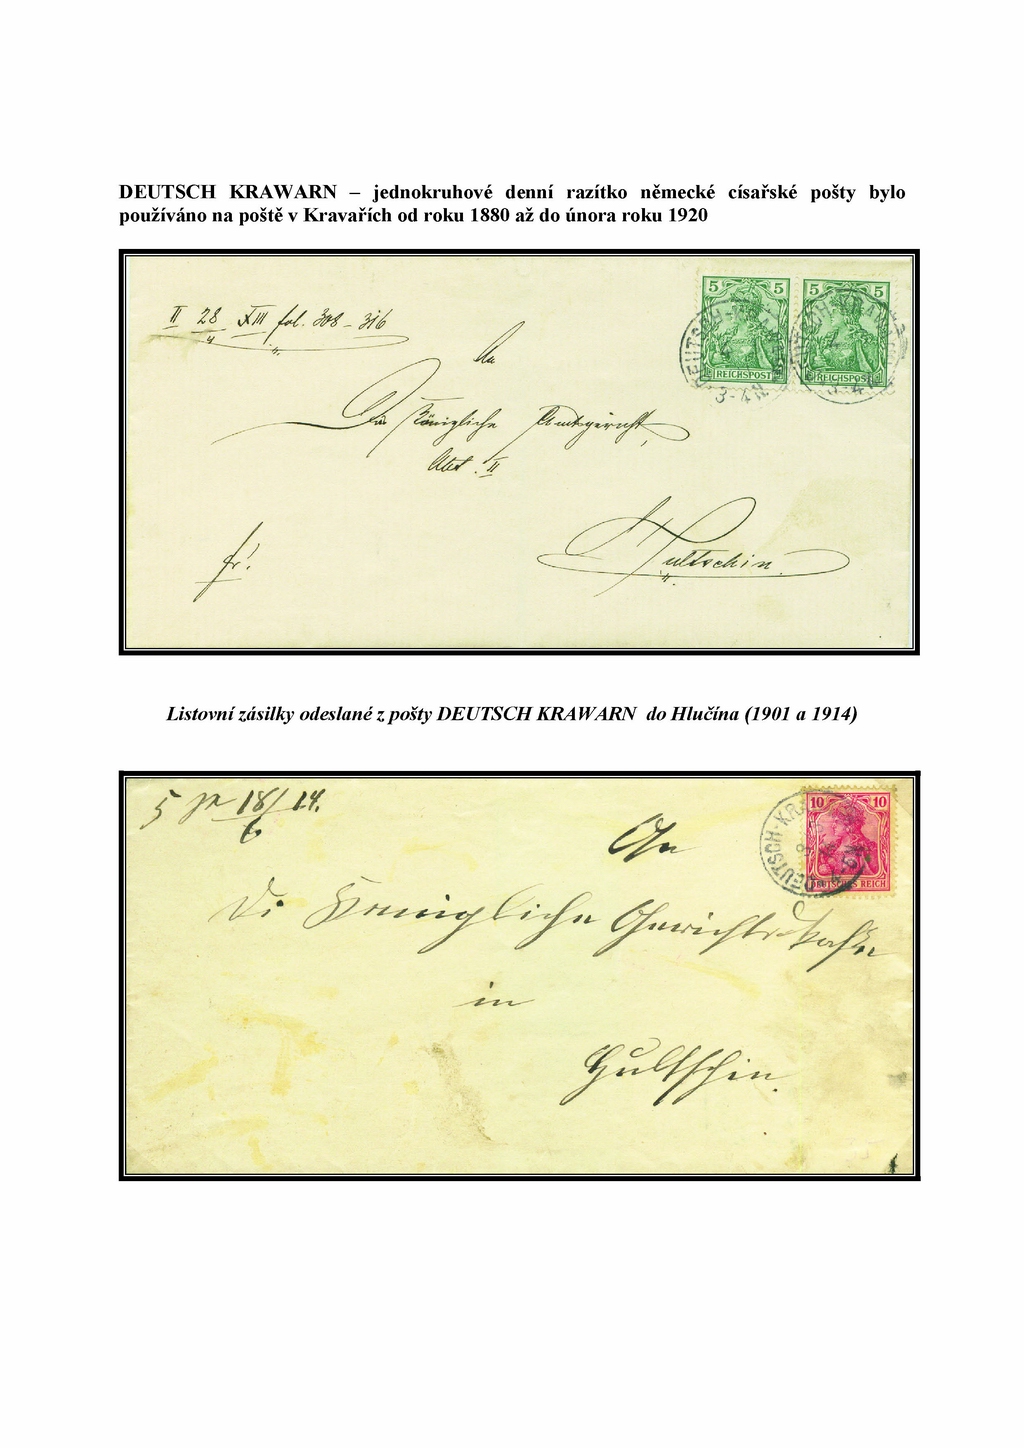 DEUTSCH KRAWARN – jednokruhové denní razítko německé císařské pošty bylo
používáno na poště v Kravařích od roku 1880 až do února roku 1920
II 28 XIII fol. 308 - 316
5 5 5 5
DEUTSCH-
REICHSPOST REICHSPOST
3-4N
An
Das Königliche Amtsgericht,
Abt. II
fr!
Hultschin.
Listovní zásilky odeslané z pošty DEUTSCH KRAWARN do Hlučína (1901 a 1914)
18/6 14.
10 10
DEUTSCH-KRA
DEUTSCHES REICH
An
Di Königliche Gerichtskasse
in
Hultschin.